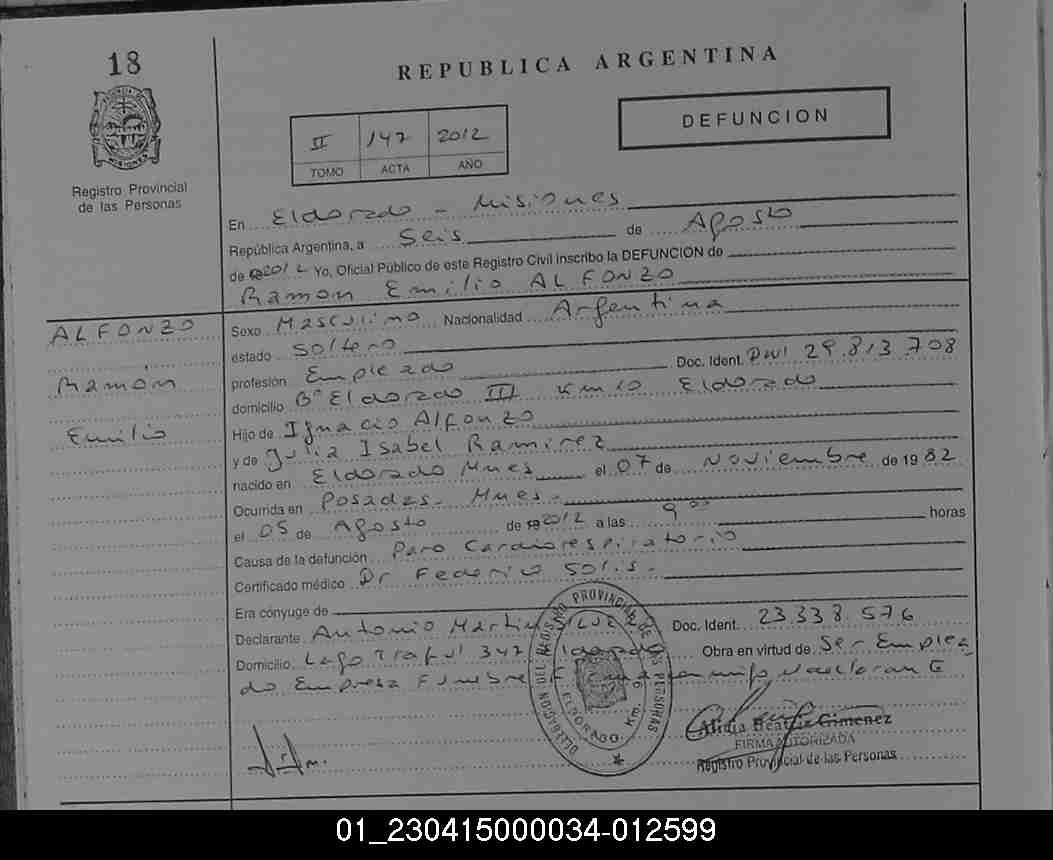 18
REPUBLICA ARGENTINA
DEFUNCION
II 147 2012
TOMO ACTA AÑO
Registro Provincial
de las Personas
En Eldorado - Misiones
República Argentina, a Seis de Agosto
de 2012 Yo, Oficial Público de este Registro Civil inscribo la DEFUNCION de
Ramon Emilio ALFONZO
ALFONZO
Ramón
Emilio
Sexo Masculino Nacionalidad Argentina
estado Soltero
profesión Empleado Doc. Ident. DNI 29.813.708
domicilio Bº Eldorado III Km 10 Eldorado
Hijo de Ignacio Alfonzo
y de Julia Isabel Ramirez
nacido en Eldorado Mnes el 07 de Noviembre de 1982
Ocurrida en Posadas - Mnes -
el 05 de Agosto de 2012 a las 9 00 horas
Causa de la defunción Paro Cardiorespiratorio
Certificado médico Dr Federico Solis -
Era cónyuge de
Declarante Antonio Doc. Ident. 23.338.576
Domicilio Lago 347 Eldorado Obra en virtud de Ser Emplea
do Empresa Funebre
DELEGACION DEL REGISTRO PROVINCIAL DE LAS PERSONAS
ELDORADO KM.
Alicia Beatriz Gimenez
FIRMA AUTORIZADA
Registro Provincial de las Personas
01_230415000034-012599